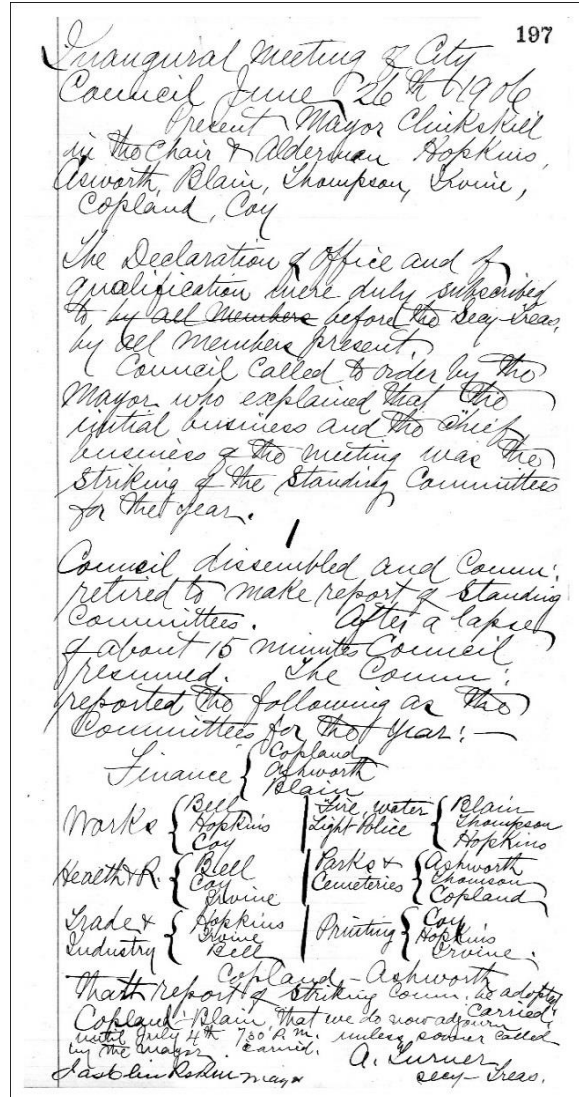 197
Inaugural Meeting of City
Council June 26th 1906
Present Mayor Clinkskill
in the Chair & Alderman Hopkins,
Asworth, Blain, Thompson, Irvine,
Copland, Coy
The Declaration of Office and of
qualification were duly subscribed
to by all Members before the Secy-Treas,
by all members present.
Council called to order by the
Mayor who explained that the
initial business and the chief
business of the meeting was the
striking of the Standing Committees
for the year.
Council dissembled and Comm:
retired to make report of Standing
Committees. After a lapse
of about 15 minutes Council
resumed. The Comm:
reported the following as the
Committees for the Year:—
Finance { Copland
Ashworth
Blain
Works { Bell
Hopkins
Coy
Fire, water
Light Police { Blain
Thompson
Hopkins
Health & R. { Bell
Coy
Irvine
Parks &
Cemeteries { Ashworth
Thomson
Copland
Trade &
Industry { Hopkins
Irvine
Bell
Printing { Coy
Hopkins
Irvine.
Copland - Ashworth
That report of Striking Comm. be adopted
Carried.
Copland-Blain, That we do now adjourn
until July 4th 7.30 P.M. unless sooner called
by the Mayor. Carried.
Jas Clinkskill Mayor
A. Turner
Secy-Treas.